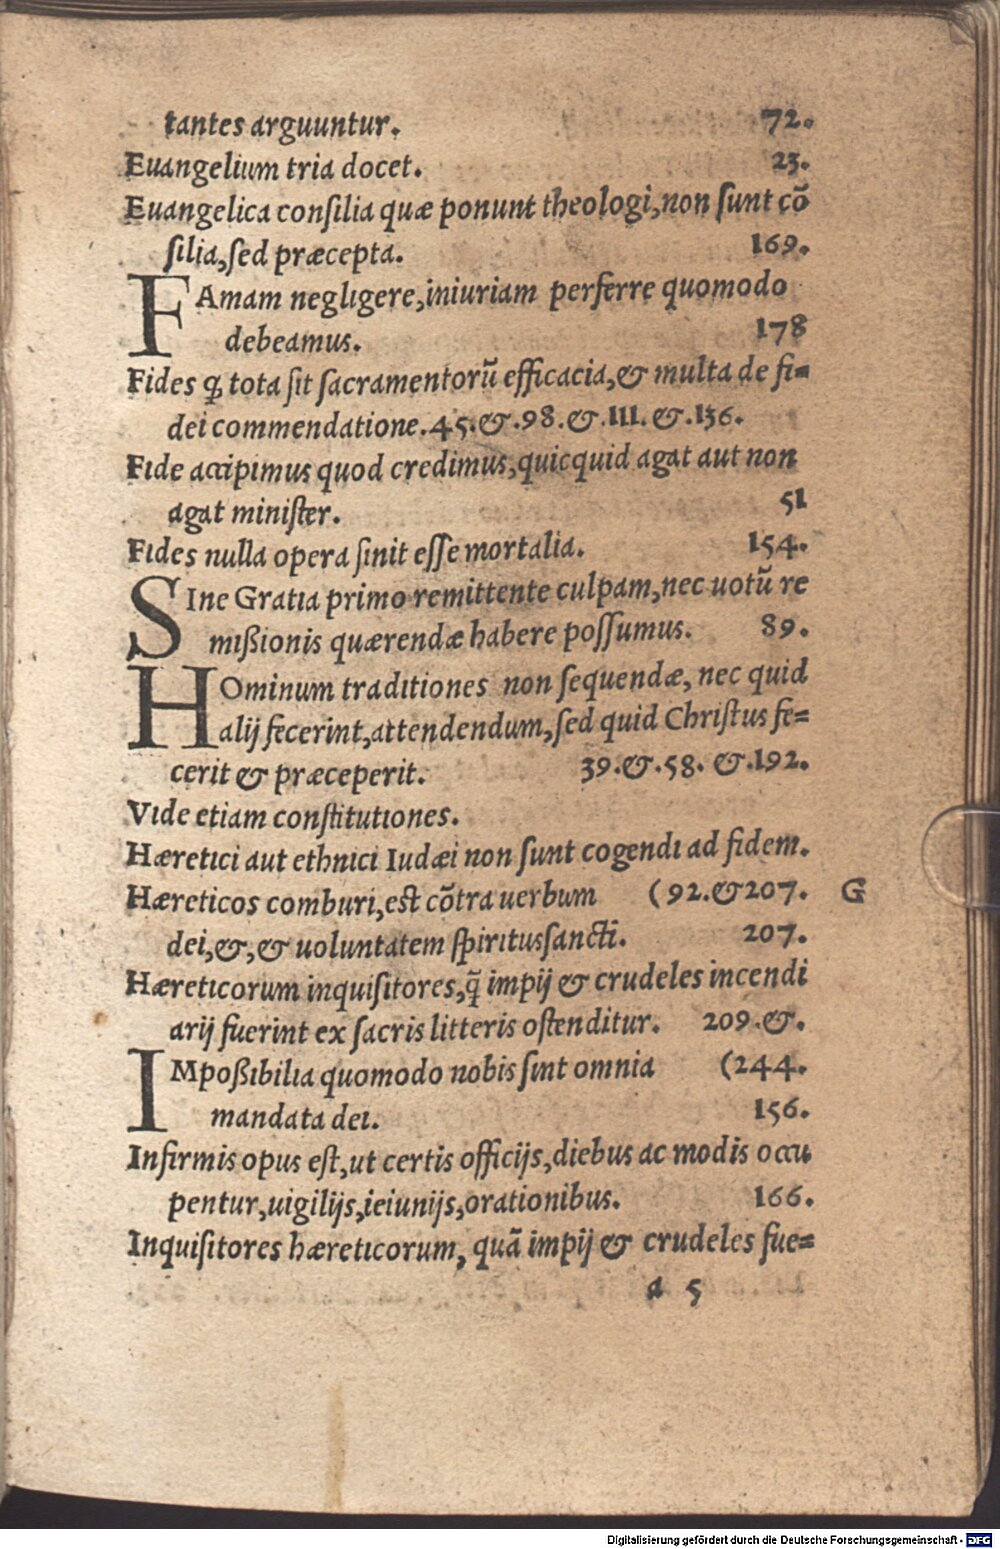 tantes arguuntur. 72.
Euangelium tria docet. 23.
Euangelica consilia quæ ponunt theologi, non sunt cõ
silia, sed præcepta. 169.
FAmam negligere, iniuriam perferre quomodo
debeamus. 178
Fides ꝙ tota sit sacramentorũ efficacia, & multa de fi=
dei commendatione. 45. &. 98. &. 111. &. 136.
Fide accipimus quod credimus, quicquid agat aut non
agat minister. 51
Fides nulla opera sinit esse mortalia. 154.
SIne Gratia primo remittente culpam, nec uotũ re
mißionis quærendæ habere possumus. 89.
HOminum traditiones non sequendæ, nec quid
alij fecerint, attendendum, sed quid Christus fe=
cerit & præceperit. 39. &. 58. &. 192.
Vide etiam constitutiones.
Hæretici aut ethnici Iudæi non sunt cogendi ad fidem.
Hæreticos comburi, est cõtra uerbum (92. & 207. G
dei, &, & uoluntatem spiritussancti. 207.
Hæreticorum inquisitores, q̃ impij & crudeles incendi
arij fuerint ex sacris litteris ostenditur. 209. &.
IMpoßibilia quomodo nobis sint omnia (244.
mandata dei. 156.
Infirmis opus est, ut certis officijs, diebus ac modis occu
pentur, uigilijs, ieiunijs, orationibus. 166.
Inquisitores hæreticorum, quã impij & crudeles fue=
a 5
Digitalisierung gefördert durch die Deutsche Forschungsgemeinschaft - DFG